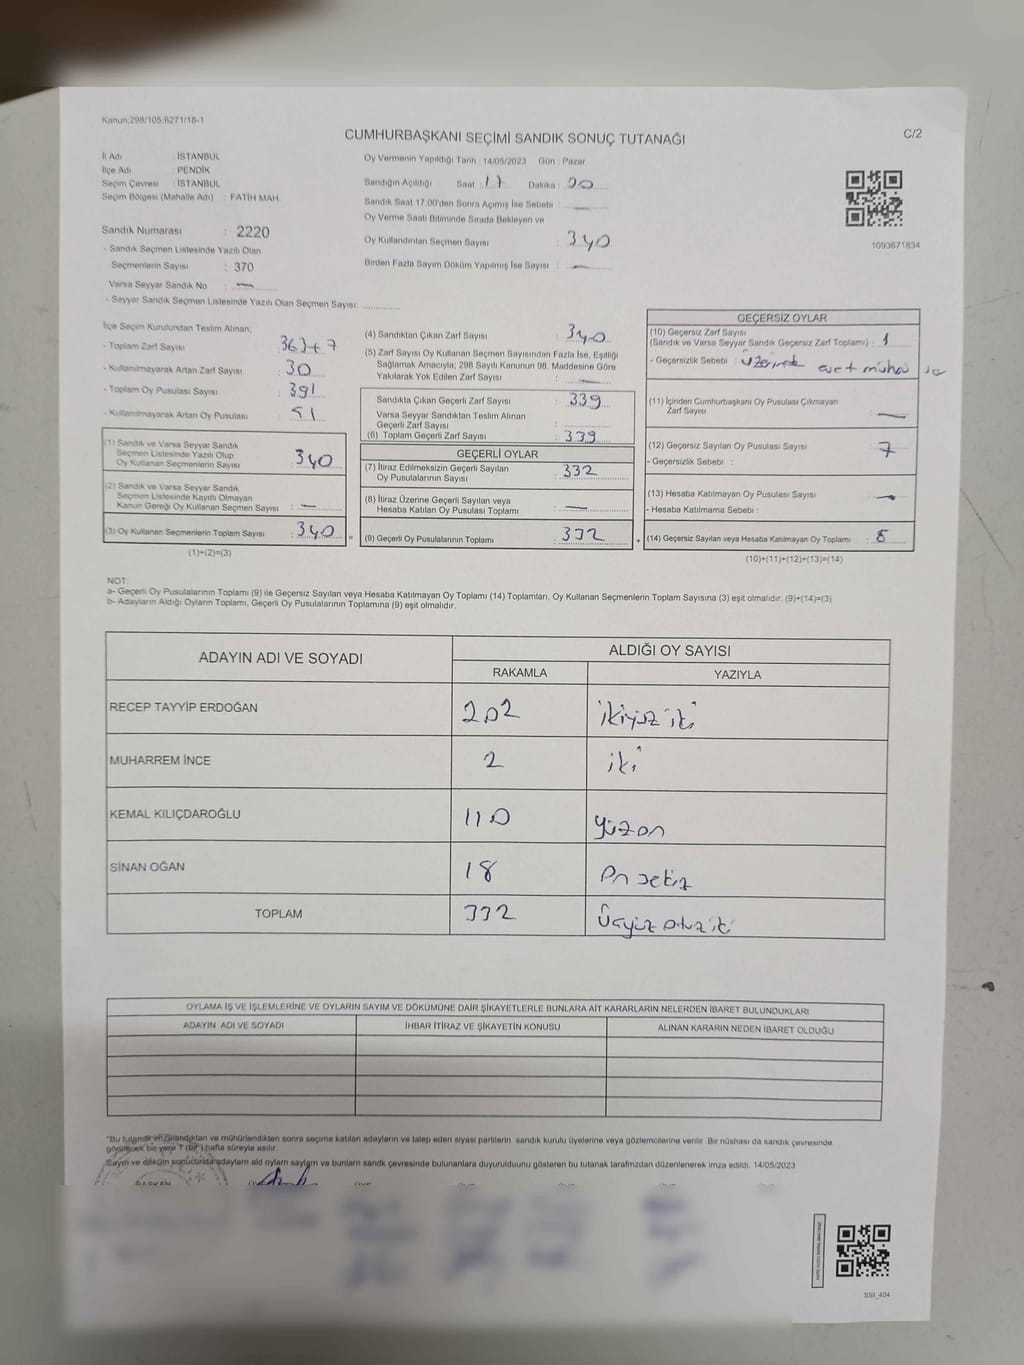 Kanun;298/105;6271/18-1
CUMHURBAŞKANI SEÇİMİ SANDIK SONUÇ TUTANAĞI
C/2
İl Adı : İSTANBUL
İlçe Adı : PENDİK
Seçim Çevresi : İSTANBUL
Seçim Bölgesi (Mahalle Adı) : FATİH MAH.
Oy Vermenin Yapıldığı Tarih : 14/05/2023 Gün : Pazar
Sandığın Açıldığı Saat : 17 Dakika : 20
Sandık Saat 17.00'den Sonra Açılmış İse Sebebi : —
Oy Verme Saati Bitiminde Sırada Bekleyen ve
Oy Kullandırılan Seçmen Sayısı : 340
Birden Fazla Sayım Döküm Yapılmış İse Sayısı : —
1093671834
Sandık Numarası : 2220
- Sandık Seçmen Listesinde Yazılı Olan
Seçmenlerin Sayısı : 370
Varsa Seyyar Sandık No : —
- Seyyar Sandık Seçmen Listesinde Yazılı Olan Seçmen Sayısı:
İlçe Seçim Kurulundan Teslim Alınan;
- Toplam Zarf Sayısı 363+7
- Kullanılmayarak Artan Zarf Sayısı : 30
- Toplam Oy Pusulası Sayısı : 391
- Kullanılmayarak Artan Oy Pusulası : 51
(1) Sandık ve Varsa Seyyar Sandık
Seçmen Listesinde Yazılı Olup
Oy Kullanan Seçmenlerin Sayısı : 340
(2) Sandık ve Varsa Seyyar Sandık
Seçmen Listesinde Kayıtlı Olmayan
Kanun Gereği Oy Kullanan Seçmen Sayısı : —
(3) Oy Kullanan Seçmenlerin Toplam Sayısı : 340
(1)+(2)=(3)
(4) Sandıktan Çıkan Zarf Sayısı : 340
(5) Zarf Sayısı Oy Kullanan Seçmen Sayısından Fazla İse, Eşitliği
Sağlamak Amacıyla; 298 Sayılı Kanunun 98. Maddesine Göre
Yakılarak Yok Edilen Zarf Sayısı : —
Sandıkta Çıkan Geçerli Zarf Sayısı : 339
Varsa Seyyar Sandıktan Teslim Alınan
Geçerli Zarf Sayısı :
(6) Toplam Geçerli Zarf Sayısı : 339
GEÇERLİ OYLAR
(7) İtiraz Edilmeksizin Geçerli Sayılan
Oy Pusulalarının Sayısı : 332
(8) İtiraz Üzerine Geçerli Sayılan veya
Hesaba Katılan Oy Pusulası Toplamı : —
= (9) Geçerli Oy Pusulalarının Toplamı : 332 +
GEÇERSİZ OYLAR
(10) Geçersiz Zarf Sayısı
(Sandık ve Varsa Seyyar Sandık Geçersiz Zarf Toplamı) : 1
- Geçersizlik Sebebi : üzerinde evet mühür
(11) İçinden Cumhurbaşkanı Oy Pusulası Çıkmayan
Zarf Sayısı : —
(12) Geçersiz Sayılan Oy Pusulası Sayısı : 7
- Geçersizlik Sebebi :
(13) Hesaba Katılmayan Oy Pusulası Sayısı : —
- Hesaba Katılmama Sebebi :
(14) Geçersiz Sayılan veya Hesaba Katılmayan Oy Toplamı : 8
(10)+(11)+(12)+(13)=(14)
NOT:
a- Geçerli Oy Pusulalarının Toplamı (9) ile Geçersiz Sayılan veya Hesaba Katılmayan Oy Toplamı (14) Toplamları, Oy Kullanan Seçmenlerin Toplam Sayısına (3) eşit olmalıdır. (9)+(14)=(3)
b- Adayların Aldığı Oyların Toplamı, Geçerli Oy Pusulalarının Toplamına (9) eşit olmalıdır.
ADAYIN ADI VE SOYADI ALDIĞI OY SAYISI
RAKAMLA YAZIYLA
RECEP TAYYİP ERDOĞAN 202 ikiyüz iki
MUHARREM İNCE 2 iki
KEMAL KILIÇDAROĞLU 110 yüzon
SİNAN OĞAN 18 on sekiz
TOPLAM 332 Üçyüz otuz iki
OYLAMA İŞ VE İŞLEMLERİNE VE OYLARIN SAYIM VE DÖKÜMÜNE DAİR ŞİKAYETLERLE BUNLARA AİT KARARLARIN NELERDEN İBARET BULUNDUKLARI
ADAYIN ADI VE SOYADI İHBAR İTİRAZ VE ŞİKAYETİN KONUSU ALINAN KARARIN NEDEN İBARET OLDUĞU
"Bu tutanak imzalandıktan ve mühürlendikten sonra seçime katılan adayların ve talep eden siyasi partilerin sandık kurulu üyelerine veya gözlemcilerine verilir. Bir nüshası da sandık çevresinde
görülecek bir yere 1 (bir) hafta süreyle asılır.
Sayım ve döküm sonucunda adayların ald oyların sayların ve bunların sandk çevresinde bulunanlara duyurulduunu gösteren bu tutanak tarafmzdan düzenlenerek imza edildi. 14/05/2023
SSI_404